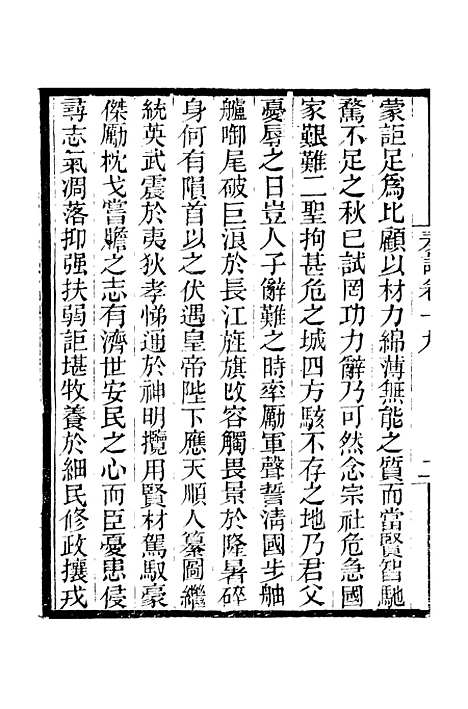 蒙詎足爲比顧以材力綿薄無能之質而當賢智馳
騖不足之秋已試罔功力辭乃可然念宗社危急國
家艱難二聖拘甚危之城四方駭不存之地乃君父
憂辱之日豈人子辭難之時率勵軍聲誓淸國步舳
艫啣尾破巨浪於長江旌旗改容觸畏景於隆暑碎
身何有隕首以之伏遇皇帝陛下應天順人纂圖繼
統英武震於夷狄孝悌通於神明攬用賢材駕馭豪
傑勵枕戈嘗膽之志有濟世安民之心而臣憂患侵
尋志氣凋落抑强扶弱詎堪牧養於細民修政攘戎
卷十九
二